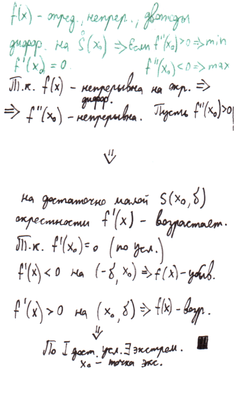 f(x) - опред., непрер., дважды
диффер. на Ṡ(x₀) ⇒ Если f''(x₀)>0 ⇒ min
f'(x₀) = 0 f''(x₀)<0 ⇒ max
Т.к. f(x) - непрерывна на окр. ⇒
диффер.
⇒ f''(x₀) - непрерывна. Пусть f''(x₀)>0
⇓
на достаточно малой S(x₀, δ)
окрестности f'(x) - возрастает.
Т.к. f'(x₀)=0 (по усл.)
f'(x) < 0 на (-δ, x₀) ⇒ f(x) - убыв.
f'(x) > 0 на (x₀, δ) ⇒ f(x) - возр.
⇓
По I дост. усл. ∃ экстрем.
x₀ - точка экс.